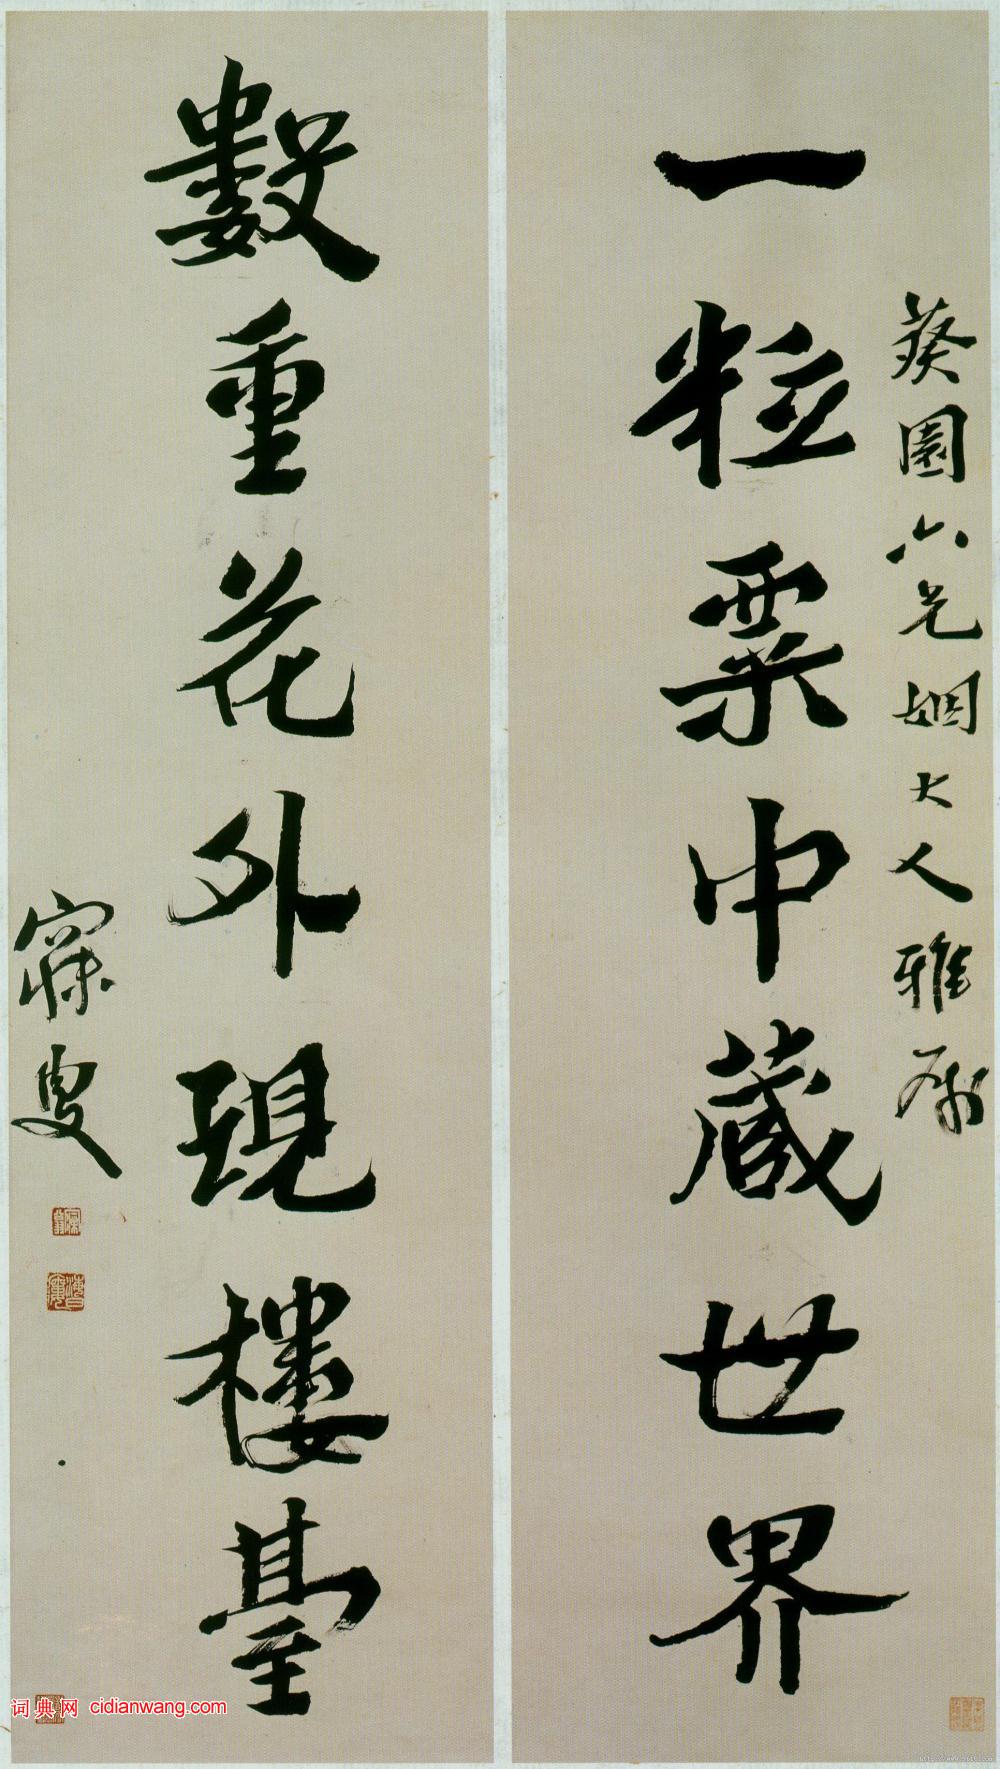 葵園六兄姻大人雅属
一粒粟中藏世界
數重花外現樓臺
寐叟
词典网 cidianwang.com